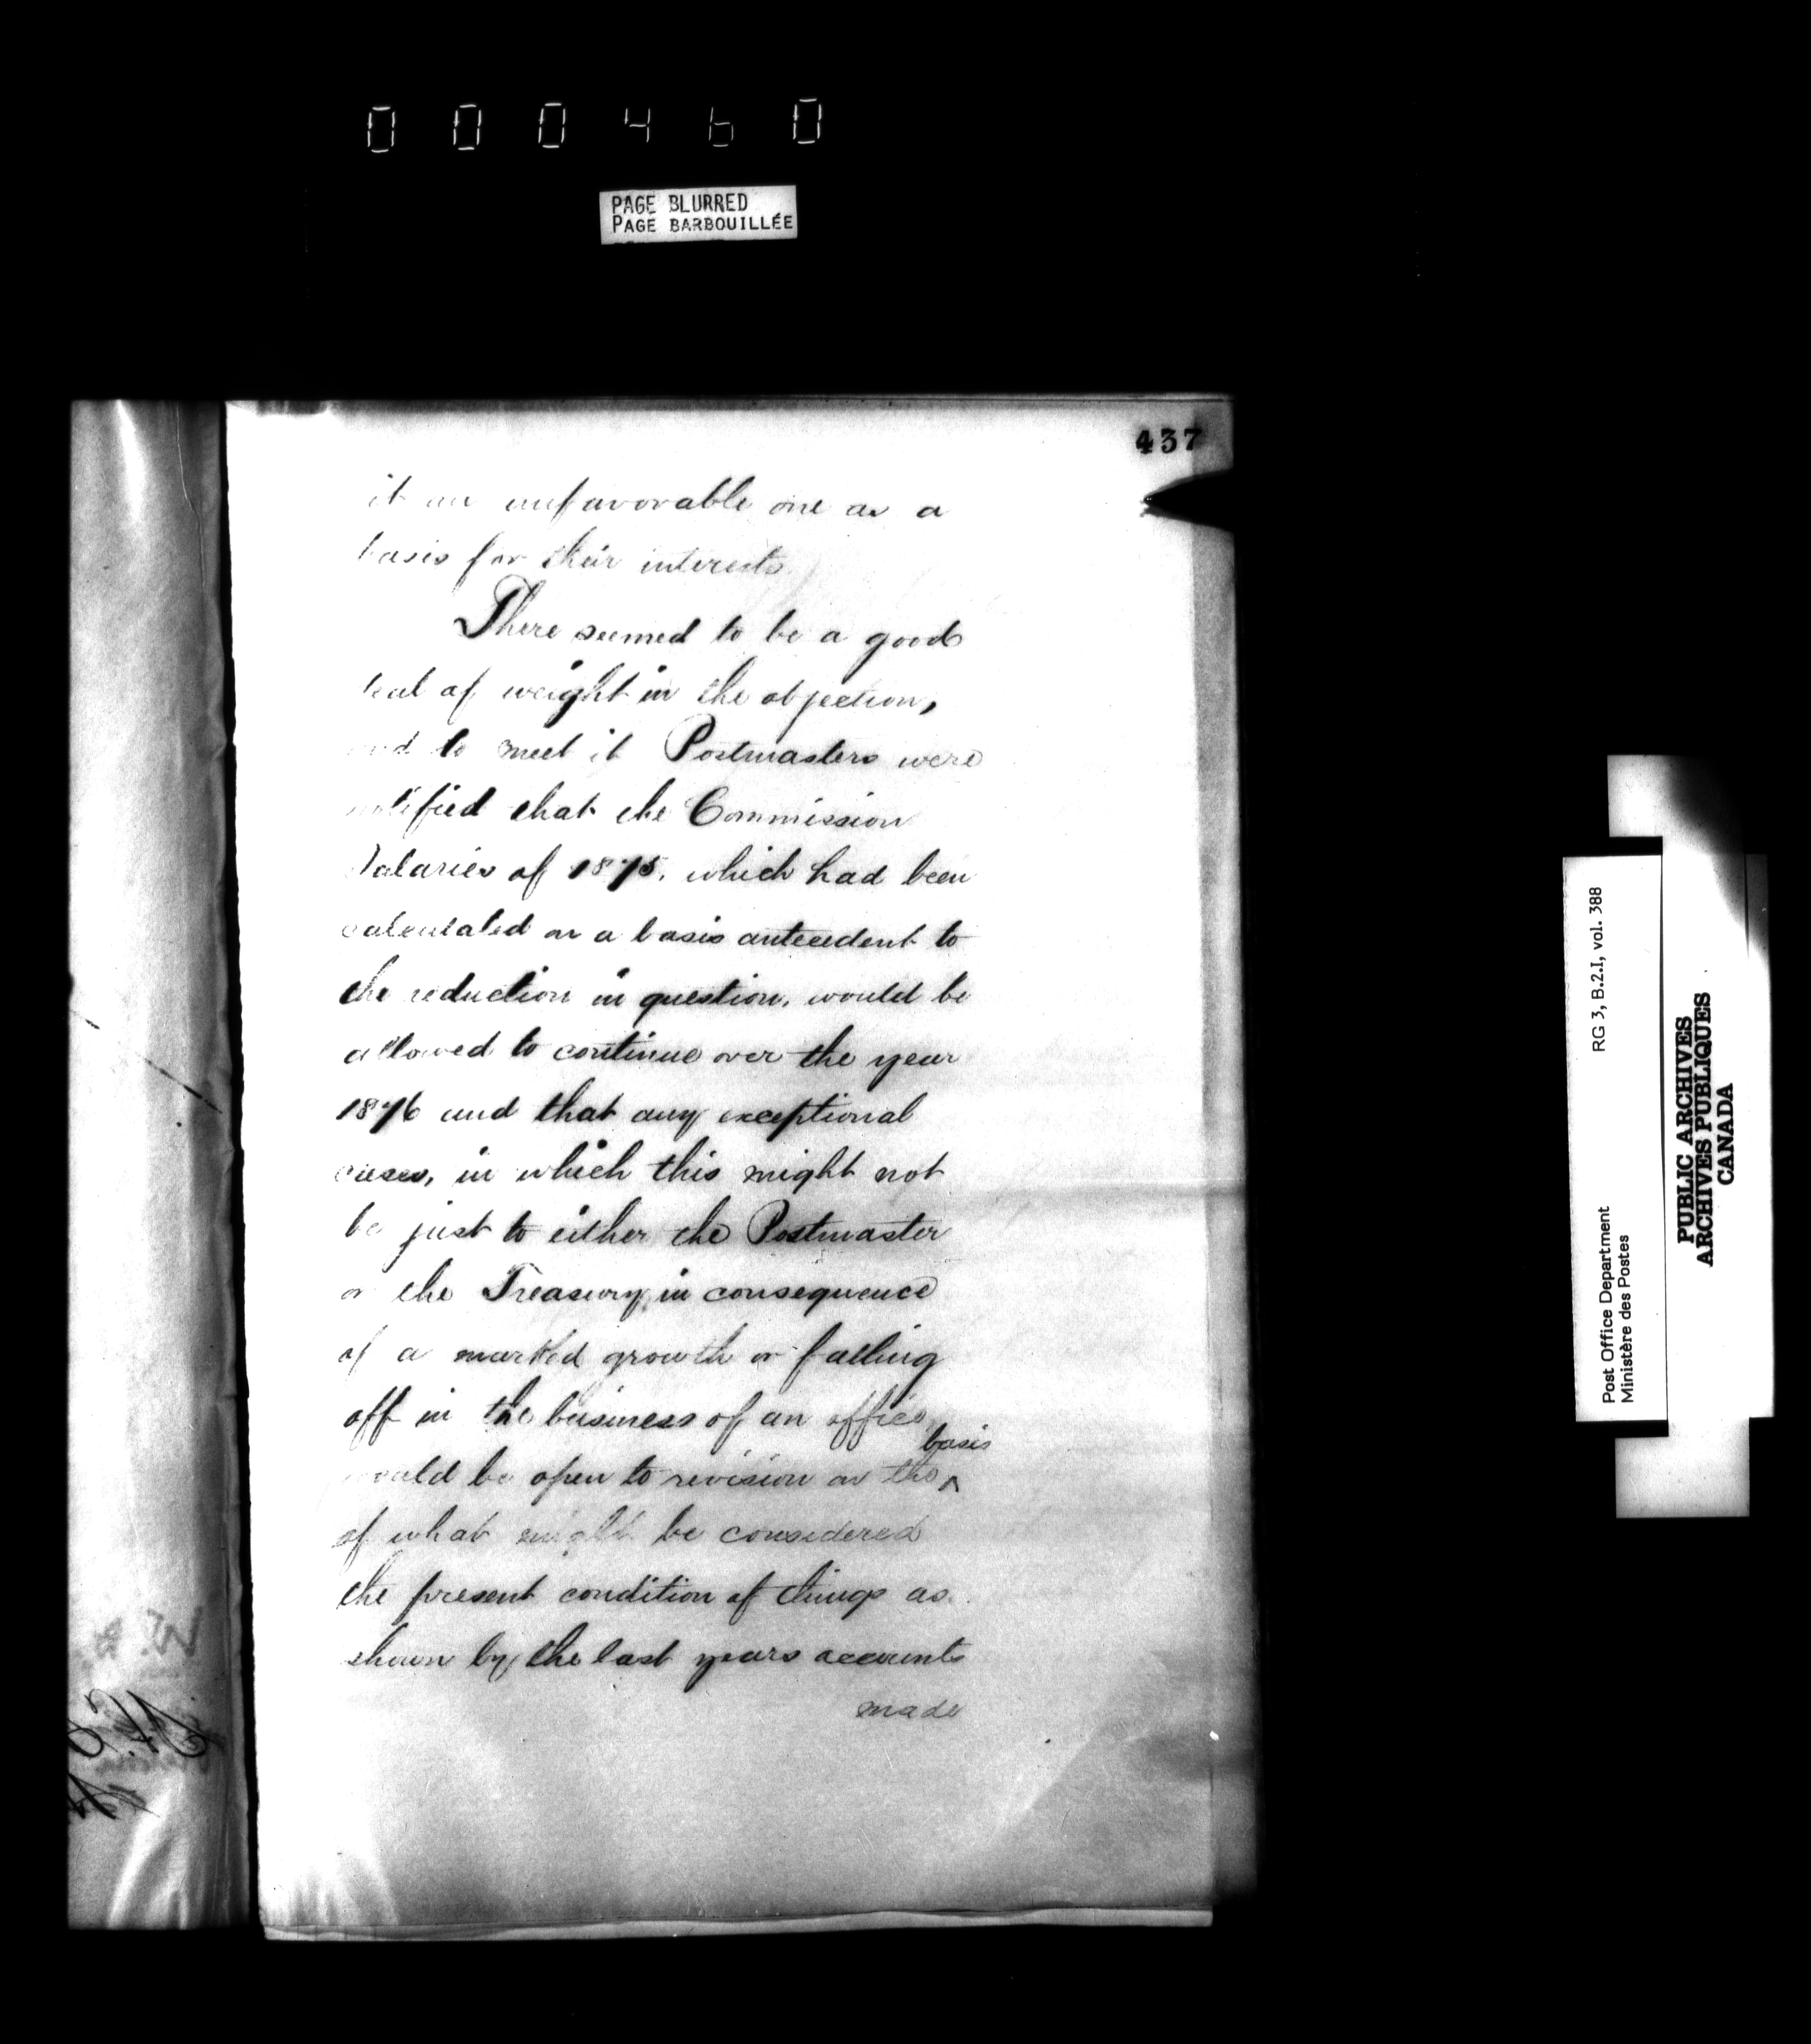 000460
PAGE BLURRED
PAGE BARBOUILLÉE
437
it an unfavorable one as a
basis for their interests
There seemed to be a good
deal of weight in the objection,
and to meet it Postmasters were
notified that the Commission
Salaries of 1875, which had been
calculated on a basis antecedent to
the reduction in question, would be
allowed to continue over the year
1876 and that any exceptional
cases, in which this might not
be just to either the Postmaster
or the Treasury, in consequence
of a marked growth or falling
off in the business of an office,
basis
would be open to revision on the ^
of what might be considered
the present condition of things as
shown by the last years accounts
made
Post Office Department RG 3, B.2.I, vol. 388
Ministère des Postes
PUBLIC ARCHIVES
ARCHIVES PUBLIQUES
CANADA